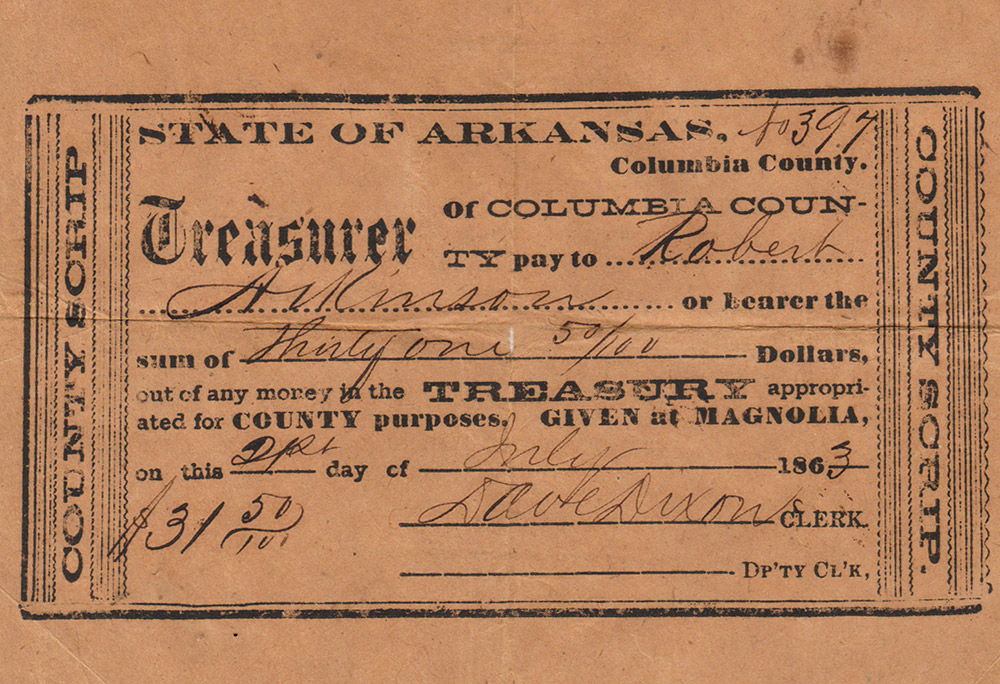 COUNTY SCRIP
STATE OF ARKANSAS, No 397
Columbia County.
Treasurer Of COLUMBIA COUN-
TY pay to Robert
Atkinson or bearer the
sum of Thirty one 50/100 Dollars,
out of any money in the TREASURY appropri-
ated for COUNTY purposes. GIVEN at MAGNOLIA,
on this 21st day of July 1863
$31 50/100
Dave Dixon CLERK.
DP'TY CL'K,
COUNTY SCRIP.